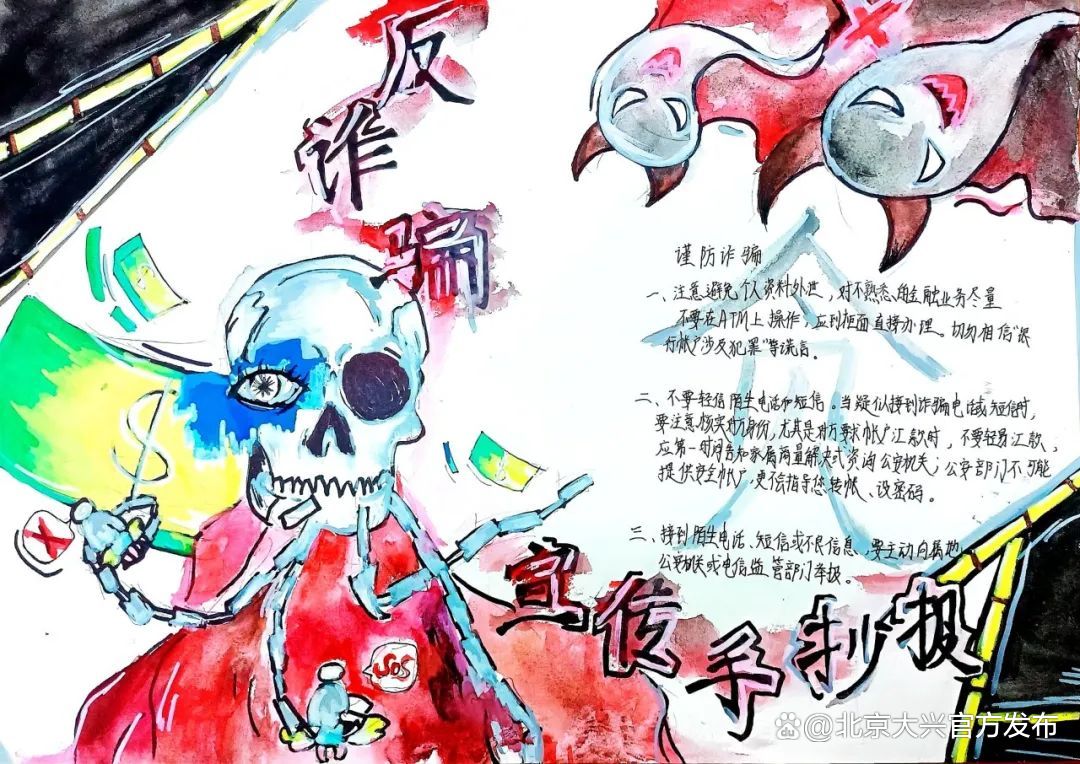 反
诈
骗
谨防诈骗
一、注意避免个人资料外泄，对不熟悉的金融业务尽量
不要在ATM上操作，应到柜面直接办理。切勿相信“银
行帐户涉及犯罪”等谎言。
二、不要轻信陌生电话和短信。当疑似接到诈骗电话或短信时，
要注意核实对方身份，尤其是对方要求帐户汇款时，不要轻易汇款，
应第一时间告知家属商量解决或咨询公安机关；公安部门不可能
提供安全帐户，更不会指导您转帐、设密码。
三、接到陌生电话、短信或不良信息，要主动向属地
公安机关或电信监管部门举报。
SOS
宣传手抄报
@北京大兴官方发布